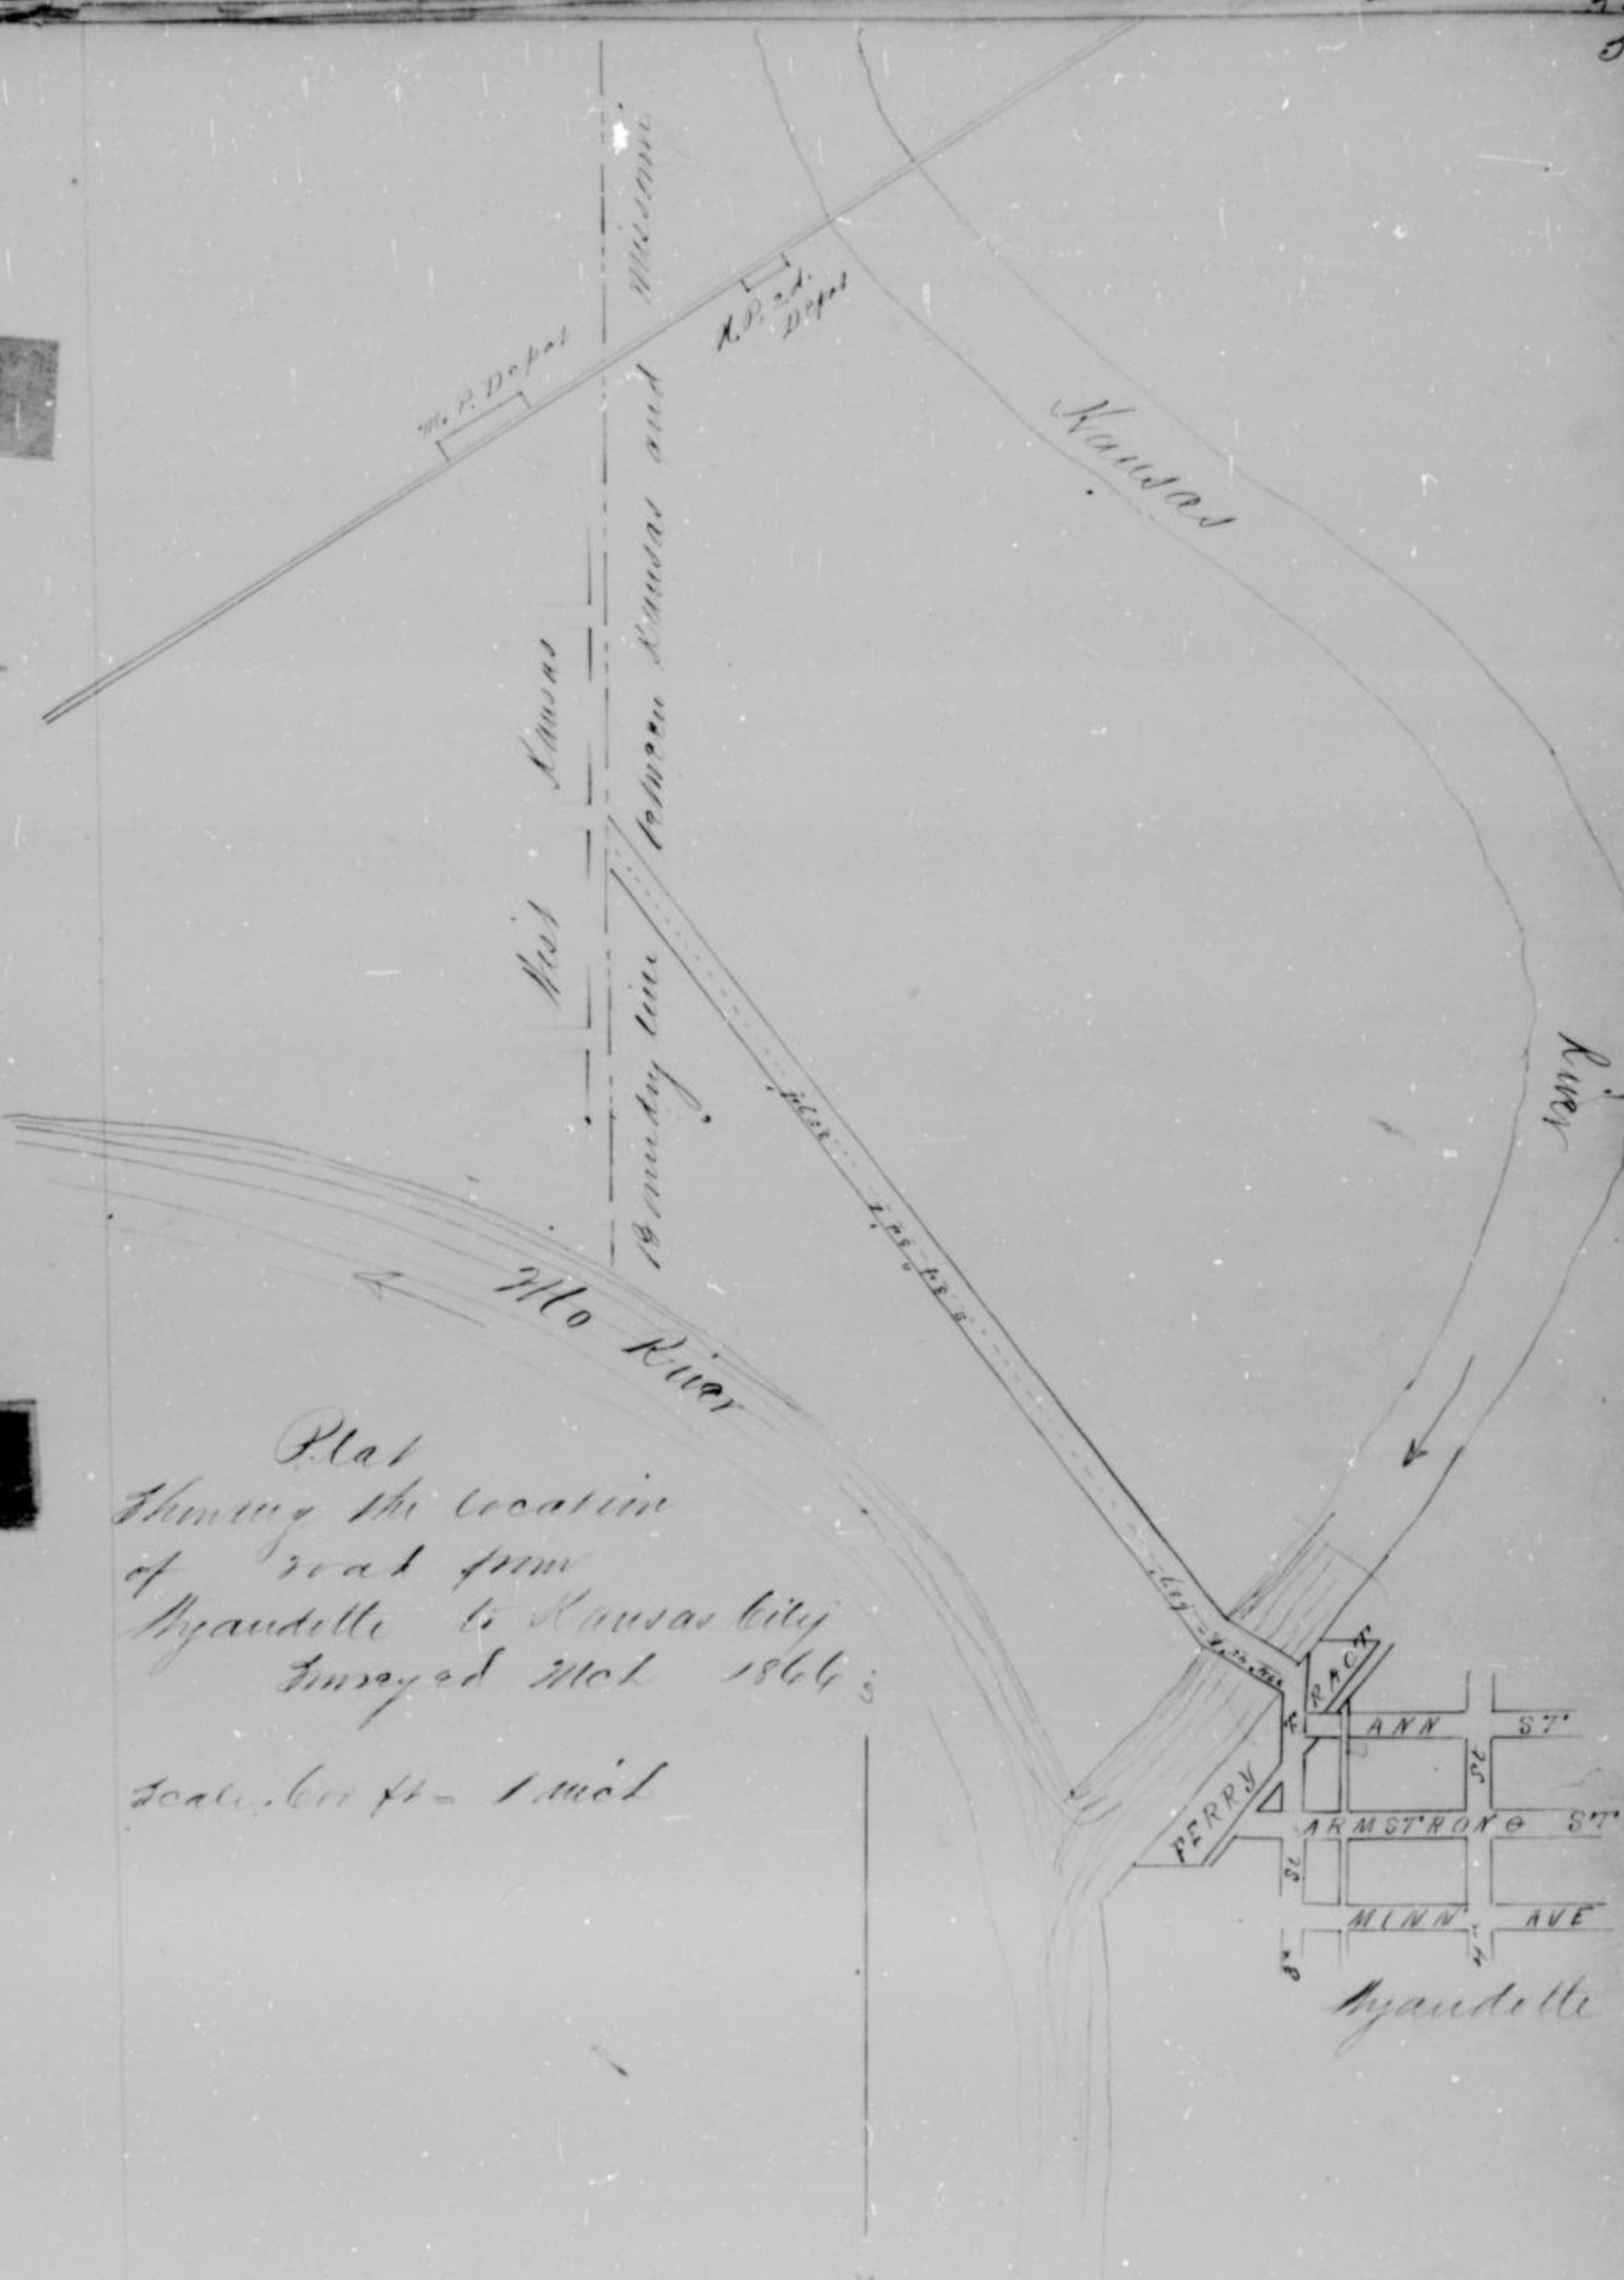 Missouri
M. P. Depot
Depot
Boundry line between Kansas and
West Kansas
Kansas
River
Mo River
Plat
Showing the location
of road from
Wyandotte to Kansas City
Surveyed Mch 1866
Scale. 600 ft = 1 inch
FERRY TRACT
ANN ST.
ST
ARMSTRONG ST
ST
MINN AVE
Wyandotte